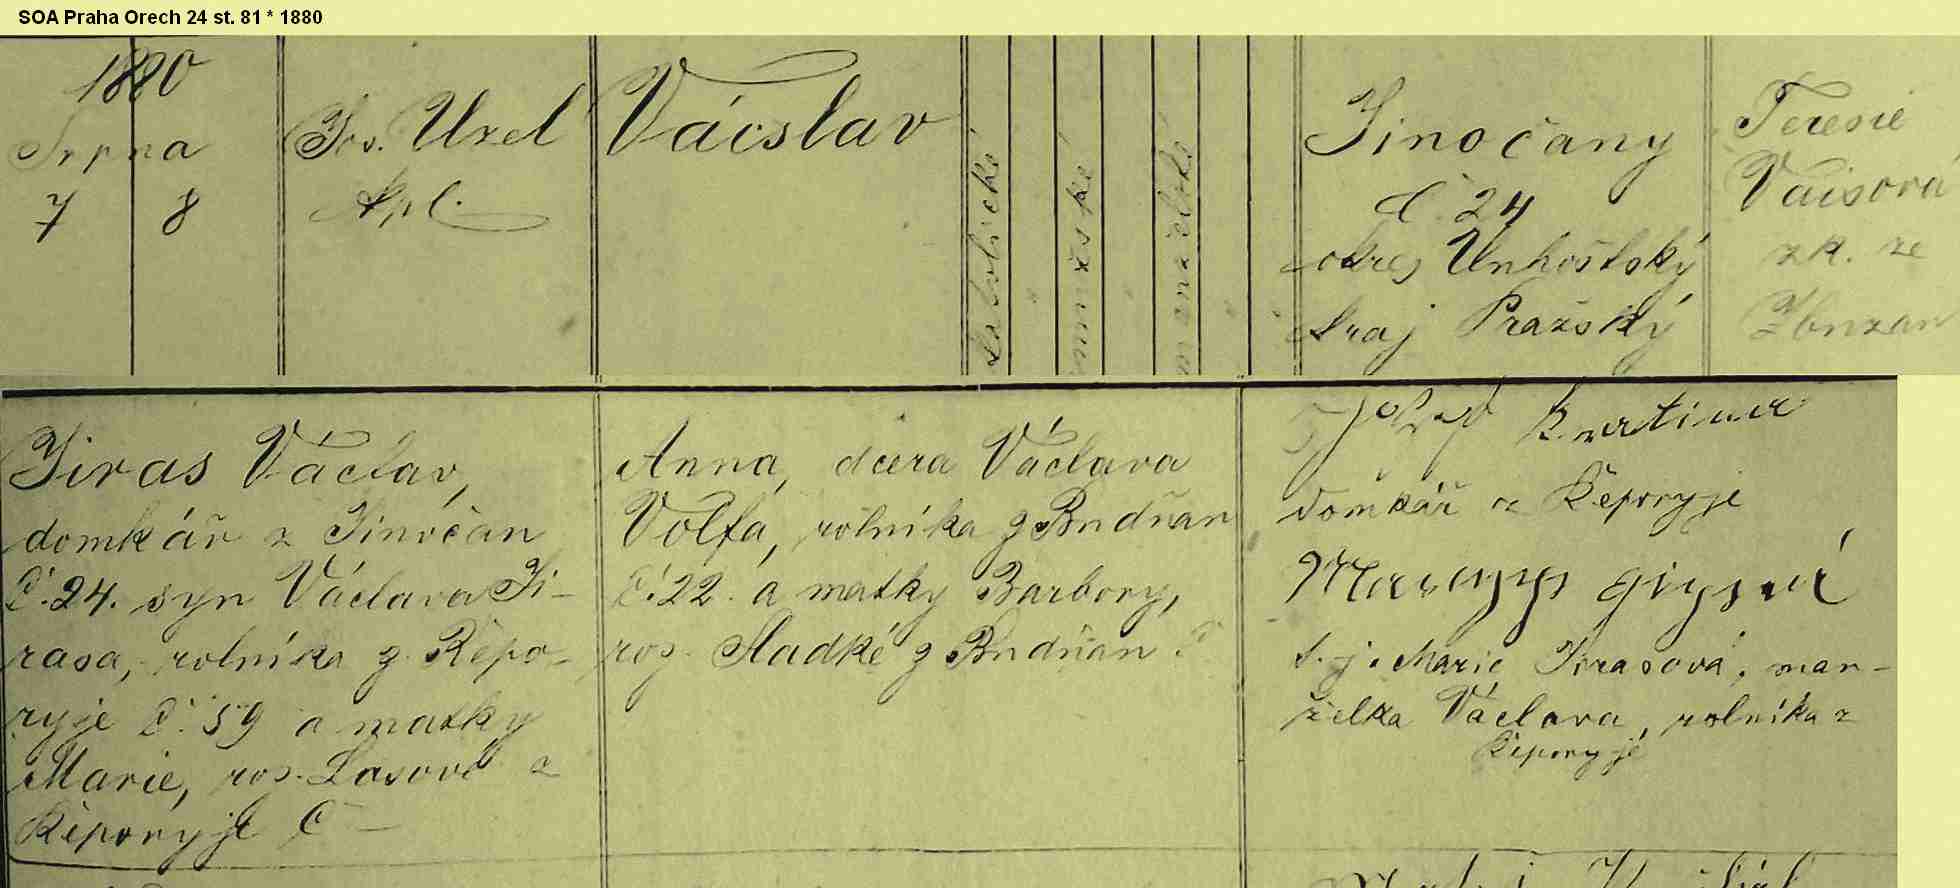 SOA Praha Orech 24 st. 81 * 1880
1880
Srpna
7 8
Jos. Uzel
kpl.
Vácslav
katolické
mužské
manželské
Jinočany
č. 24
okres Unhoštský
kraj Pražský
Teresie
Vaisová
zk. ze
Zbuzan
Jiras Václav,
domkář z Jinočan
č. 24. syn Václava Ji-
rasa, rolníka z Řepo-
ryje č. 59 a matky
Marie, roz. Lasové z
Řeporyje č –
Anna, dcera Václava
Volfa, rolníka z Budňan
č. 22. a matky Barbory,
roz. Sladké z Budňan č
domkář z Řeporyje
t. j. Marie Jirasová, man-
želka Václava, rolníka z
Řeporyjé